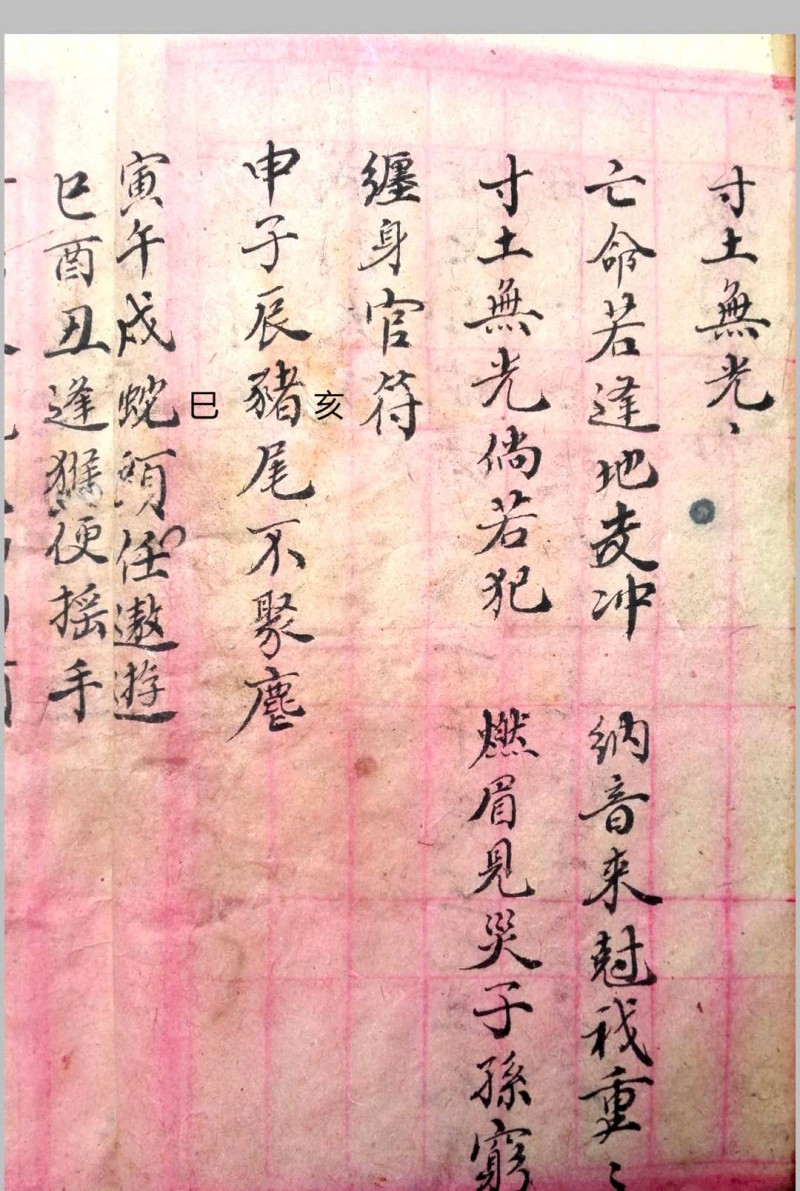 寸土無光、
亡命若逢地支冲 納音來尅我重〻
寸土無光倘若犯 燃眉見哭子孫窮
纏身官符
亥
申子辰豬尾不聚塵
巳
寅午戌蛇頭任遨遊
巳酉丑逢猴便搖手